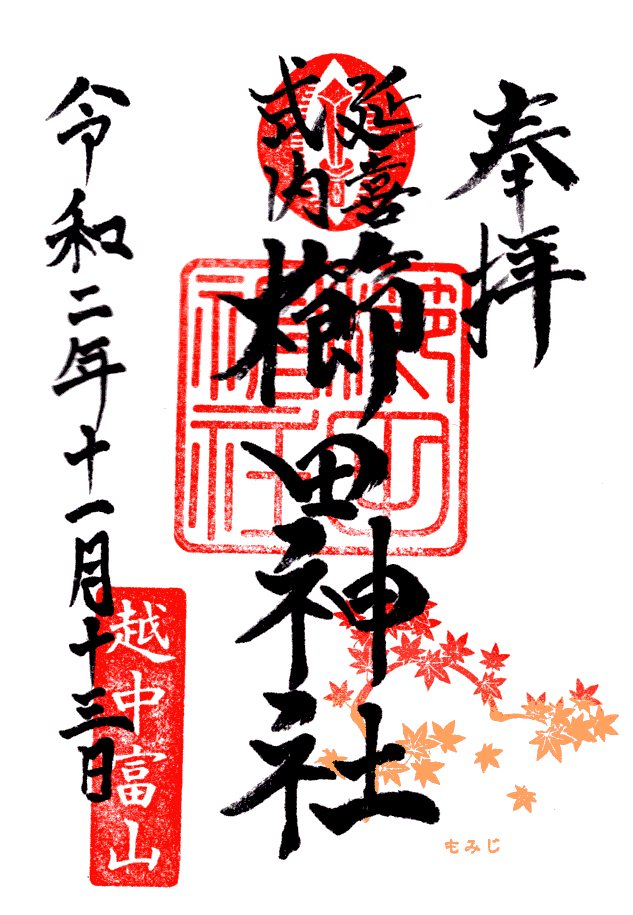 奉拝
延喜
式内
櫛田神社
令和二年十一月十三日
越中富山
もみじ